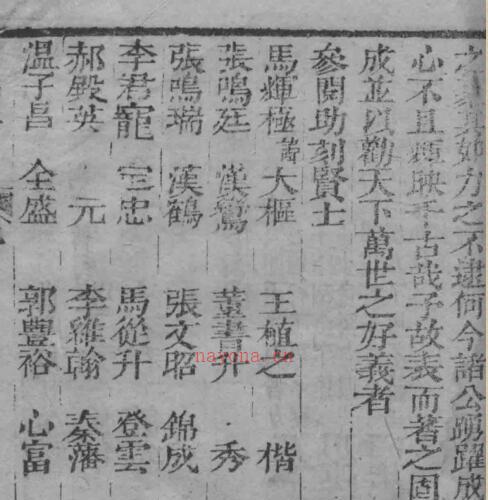 之 力之不逮何今諸公踴躍成
心不且 映千古哉予故表而著之固
成並以勸天下萬世之好義者
參閱助刻賢士
馬輝極 大樞 王植之 楷
張鳴廷 漢鷺 董書升 秀
張鳴瑞 漢鶴 張文昭 錦成
李君寵 忠 馬從升 登雲
郝殿英 元 李維翰 秦藩
溫子昌 全盛 郭豐裕 心富
nayona.cn